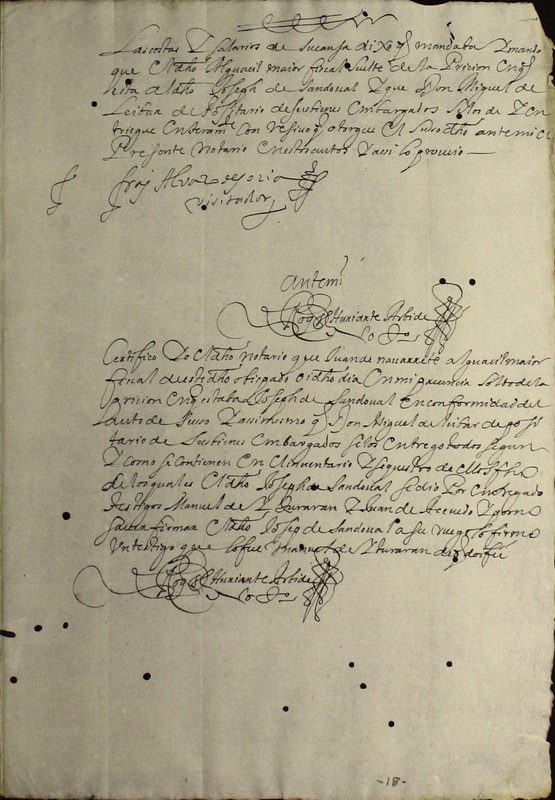 Las costas Y salarios de su causa dixo q mandaba Y mando
que El dho Alguacil maior fiscal suelte de la Pricion En q
esta a el dho Joseph de Sandoval Y que Don Miguel de
Leitua depositario de sus vienes Embargados se los de Y en
triegue Enteramte Con resivo q otorgue El suso dho ante mi El
Presente Notario En estos autos Y assi lo proveio —
fray Alvaro de
visitador
Ante mi
Certifico Yo El dho notario que Juan de navarrete alguacil maior
fiscal de este dho obispado oi dho dia En mi presencia solto de la
pricion En q estaba Joseph de Sandoval En conformidad del
auto de suso Y assimesmo q Don Miguel de leitua deposi
tario de sus vienes Embargados se los Entrego todos segun
Y como se contienen En El inventario Y sequestro de Ellos fho
de los quales El dho Joseph de Sandoval se dio Por Entregado
testigos Manuel de Yturaran Y Juan de Acevedo Y por no
saver firmar El dho Josep de Sandoval a su ruego lo firmo
Un testigo que lo fue Manuel de Yturaran de q doi fee
-18-